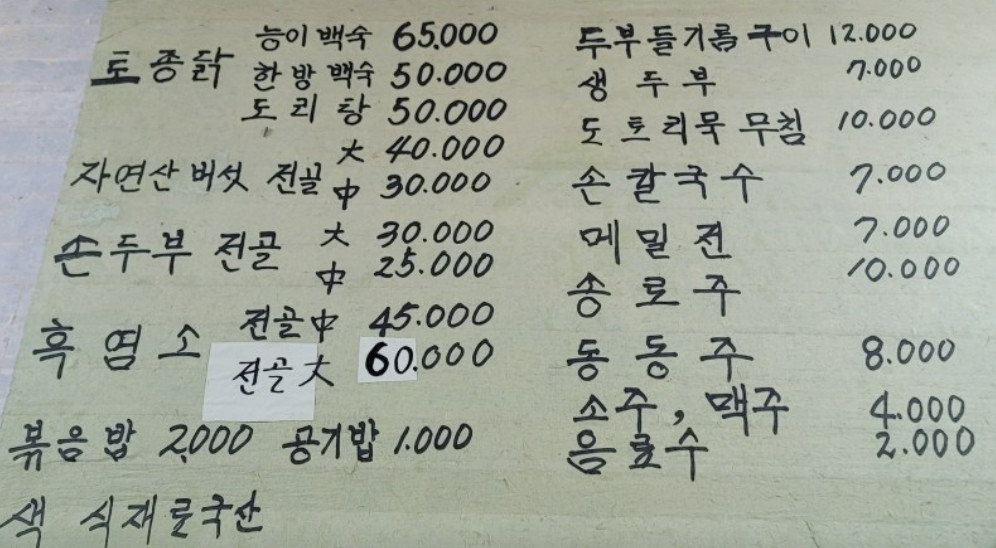 토종닭 능이백숙 65.000
한방백숙 50.000
도리탕 50.000
자연산버섯 전골 大 40.000
中 30.000
손두부 전골 大 30.000
中 25.000
흑염소 전골中 45.000
전골大 60.000
볶음밥 2,000 공기밥 1.000
색 식재료국산
두부들기름구이 12.000
생두부 7.000
도토리묵무침 10.000
손칼국수 7.000
메밀전 7.000
송로주 10.000
동동주 8.000
소주, 맥주 4.000
음료수 2.000